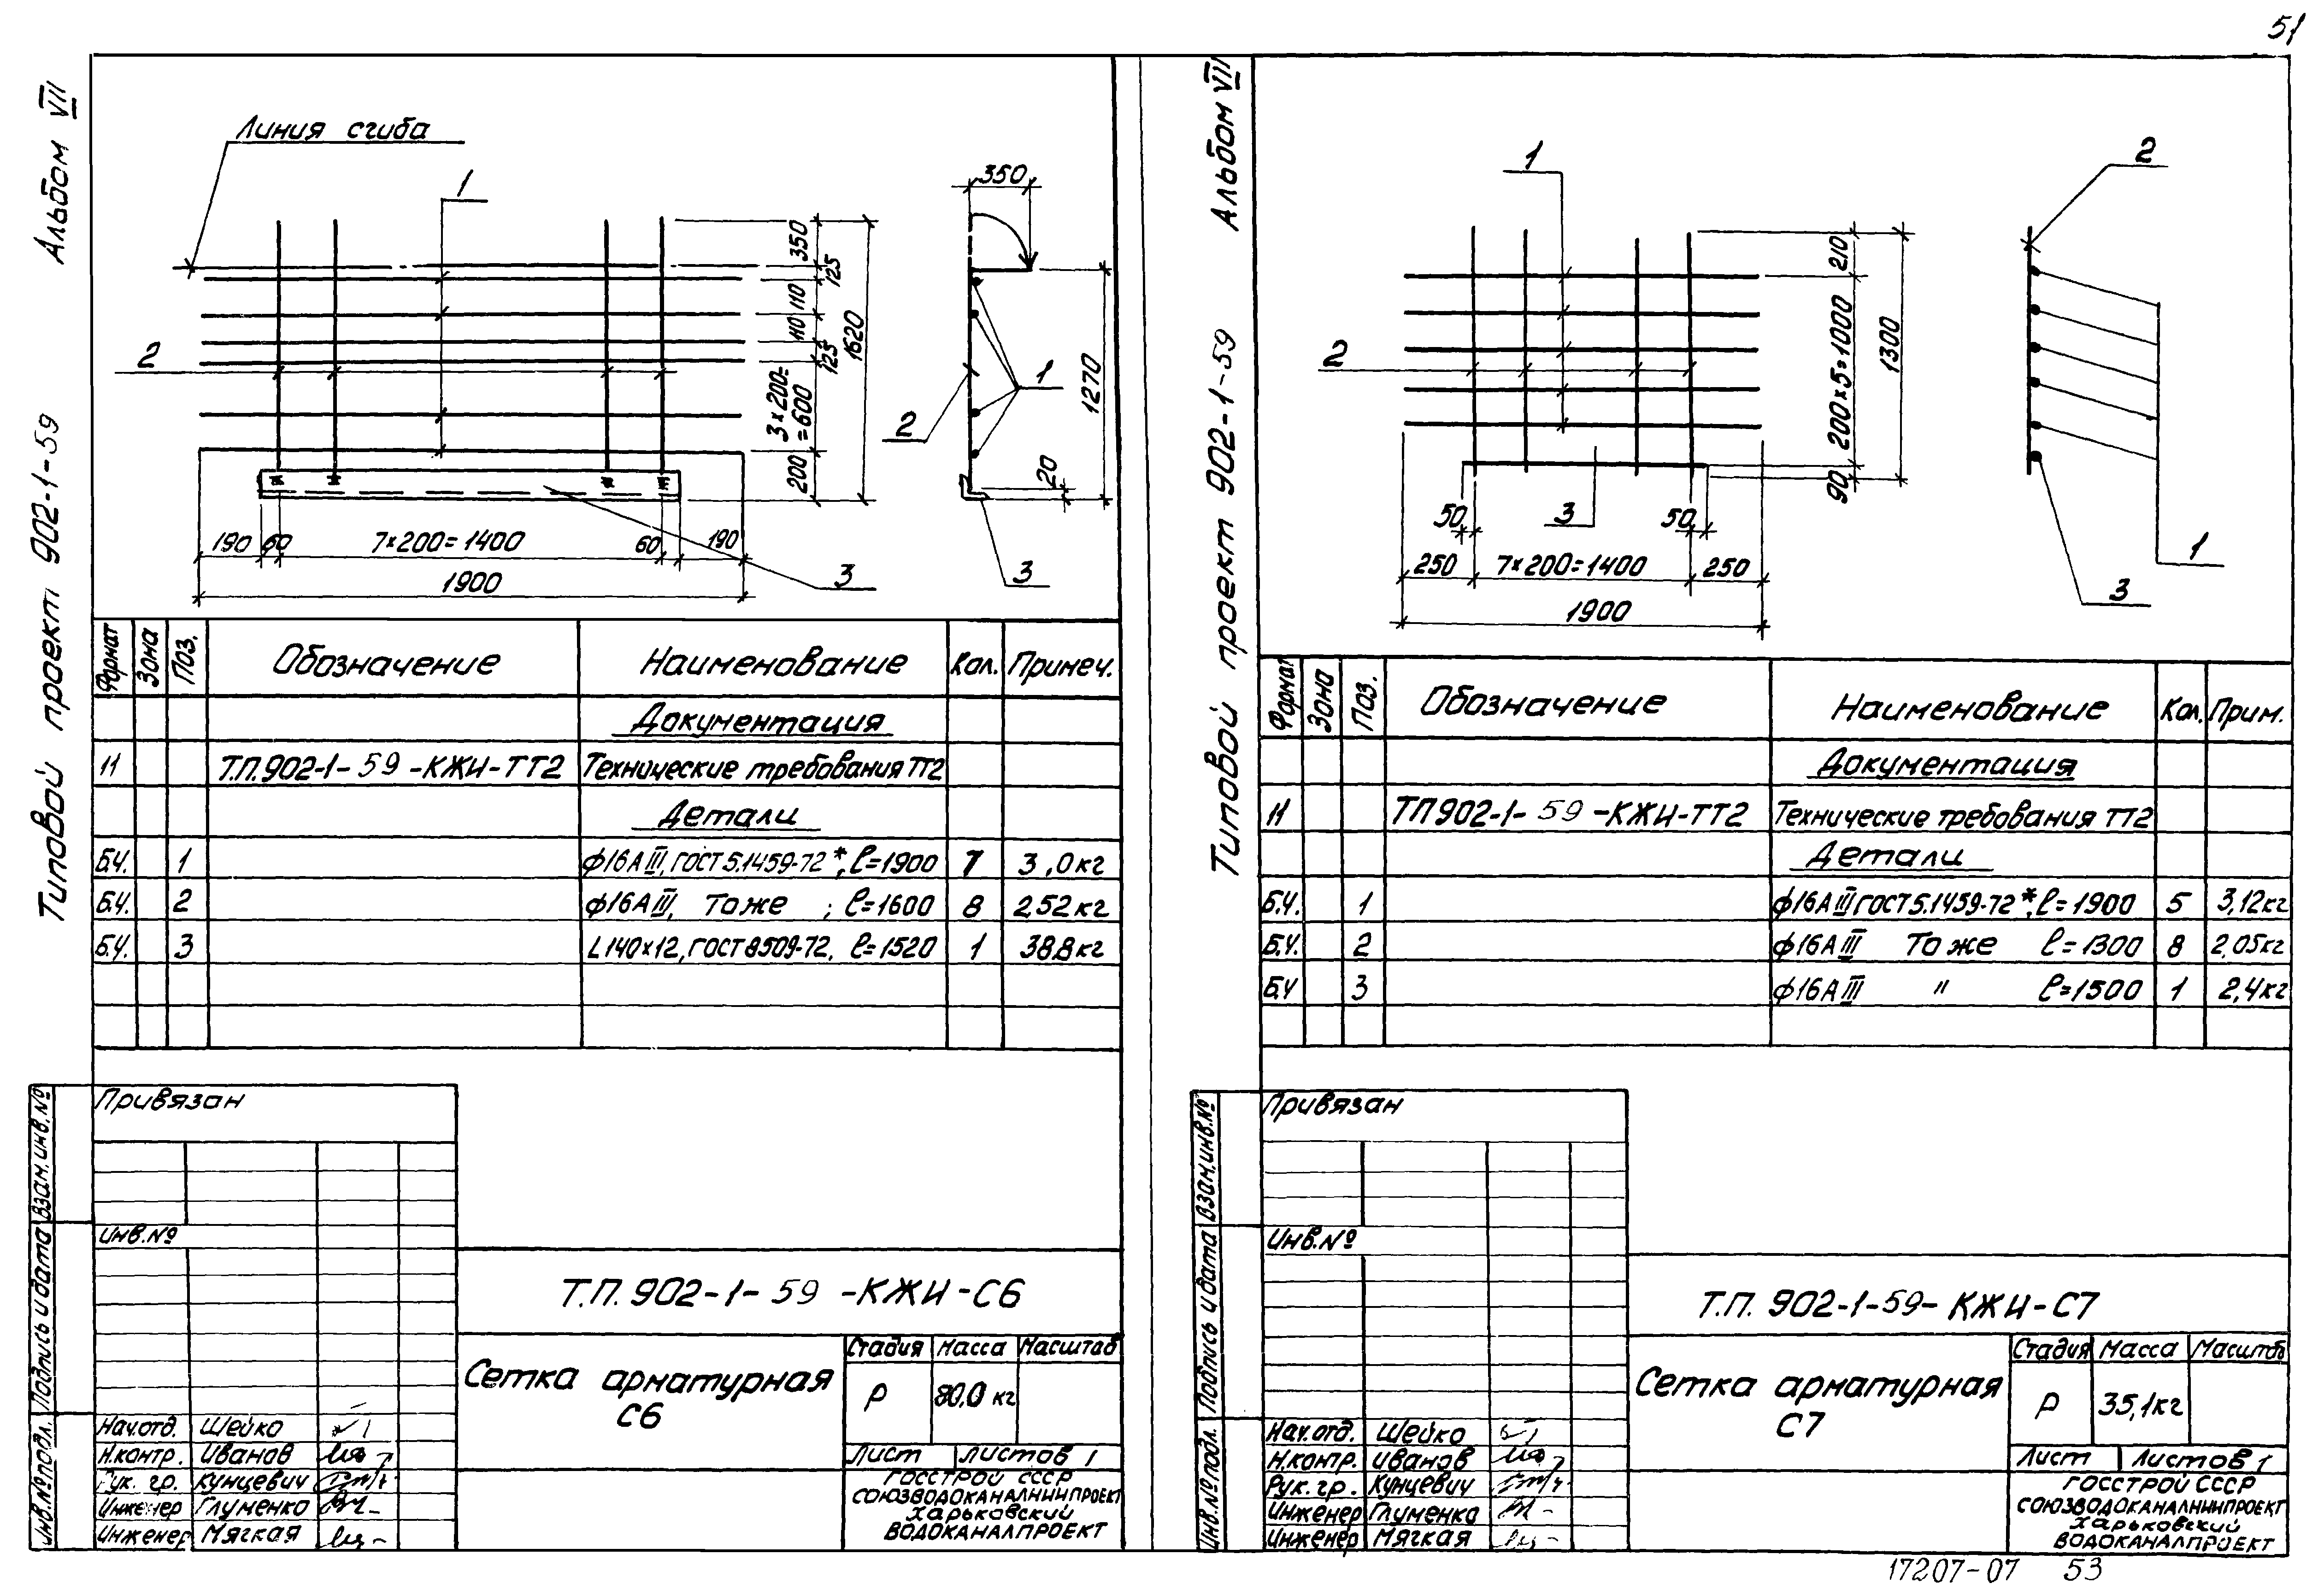 51
Альбом VII
Типовой проект 902-1-59
Линия сгиба
1
2
350
125
110
110
125
3×200=
=600
200
1620
190
60
7×200=1400
60
190
1900
3
350
1270
20
1
2
3
Формат Зона Поз. Обозначение Наименование Кол. Примеч.
Документация
11 Т.П.902-1-59-КЖИ-ТТ2 Технические требования ТТ2
Детали
Б.Ч. 1 ф16АIII, ГОСТ5.1459-72*, ℓ=1900 7 3,0кг
Б.Ч. 2 ф16АIII, То же ; ℓ=1600 8 2,52кг
Б.Ч. 3 L140×12, ГОСТ8509-72, ℓ=1520 1 38,8кг
Привязан
Инв.№
Взам.инв.№
Подпись и дата
Инв.№подл.
Т.П. 902-1-59-КЖИ-С6
Сетка арматурная
С6
Стадия Масса Масштаб
Р 80,0 кг
Лист Листов 1
Нач.отд. Шейко
Н.контр. Иванов
Рук. гр. Кунцевич
Инженер Глуменко
Инженер Мягкая
ГОССТРОЙ СССР
СОЮЗВОДОКАНАЛНИИПРОЕКТ
Харьковский
ВОДОКАНАЛПРОЕКТ
Альбом VII
Типовой проект 902-1-59
1
2
210
200×5=1000
90
1300
50
3
50
250
7×200=1400
250
1900
2
1
3
Формат Зона Поз. Обозначение Наименование Кол. Прим.
Документация
11 ТП902-1-59-КЖИ-ТТ2 Технические требования ТТ2
Детали
Б.Ч. 1 ф16АIII ГОСТ5.1459-72*, ℓ=1900 5 3,12кг
Б.Ч. 2 ф16АIII То же ℓ=1300 8 2,05кг
Б.Ч 3 ф16АIII " ℓ=1500 1 2,4кг
Привязан
Инв.№
Взам.инв.№
Подпись и дата
Инв.№подл.
Т.П. 902-1-59-КЖИ-С7
Сетка арматурная
С7
Стадия Масса Масштаб
Р 35,1кг
Лист Листов 1
Нач.отд. Шейко
Н.контр. Иванов
Рук.гр. Кунцевич
Инженер Глуменко
Инженер Мягкая
ГОССТРОЙ СССР
СОЮЗВОДОКАНАЛНИИПРОЕКТ
Харьковский
ВОДОКАНАЛПРОЕКТ
17207-07 53